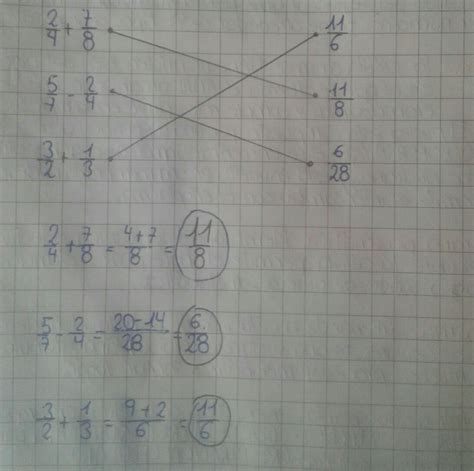 2/4 + 7/8    11/6
5/7 - 2/4    11/8
3/2 + 1/3    6/28
2/4 + 7/8 = 4+7/8 = 11/8
5/7 - 2/4 = 20-14/28 = 6/28
3/2 + 1/3 = 9+2/6 = 11/6